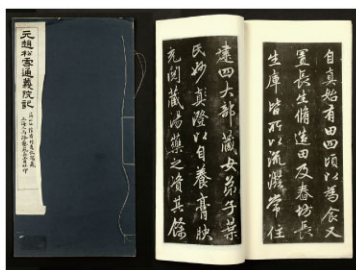 元趙松雪通義院記
自真始有田四頃以為食又
置長生脩造田及舂坊長
生庫皆所以流常住
建四大部藏女弟子葉
氏妙真以自養膏腴
充閱藏湯藥之資其餘